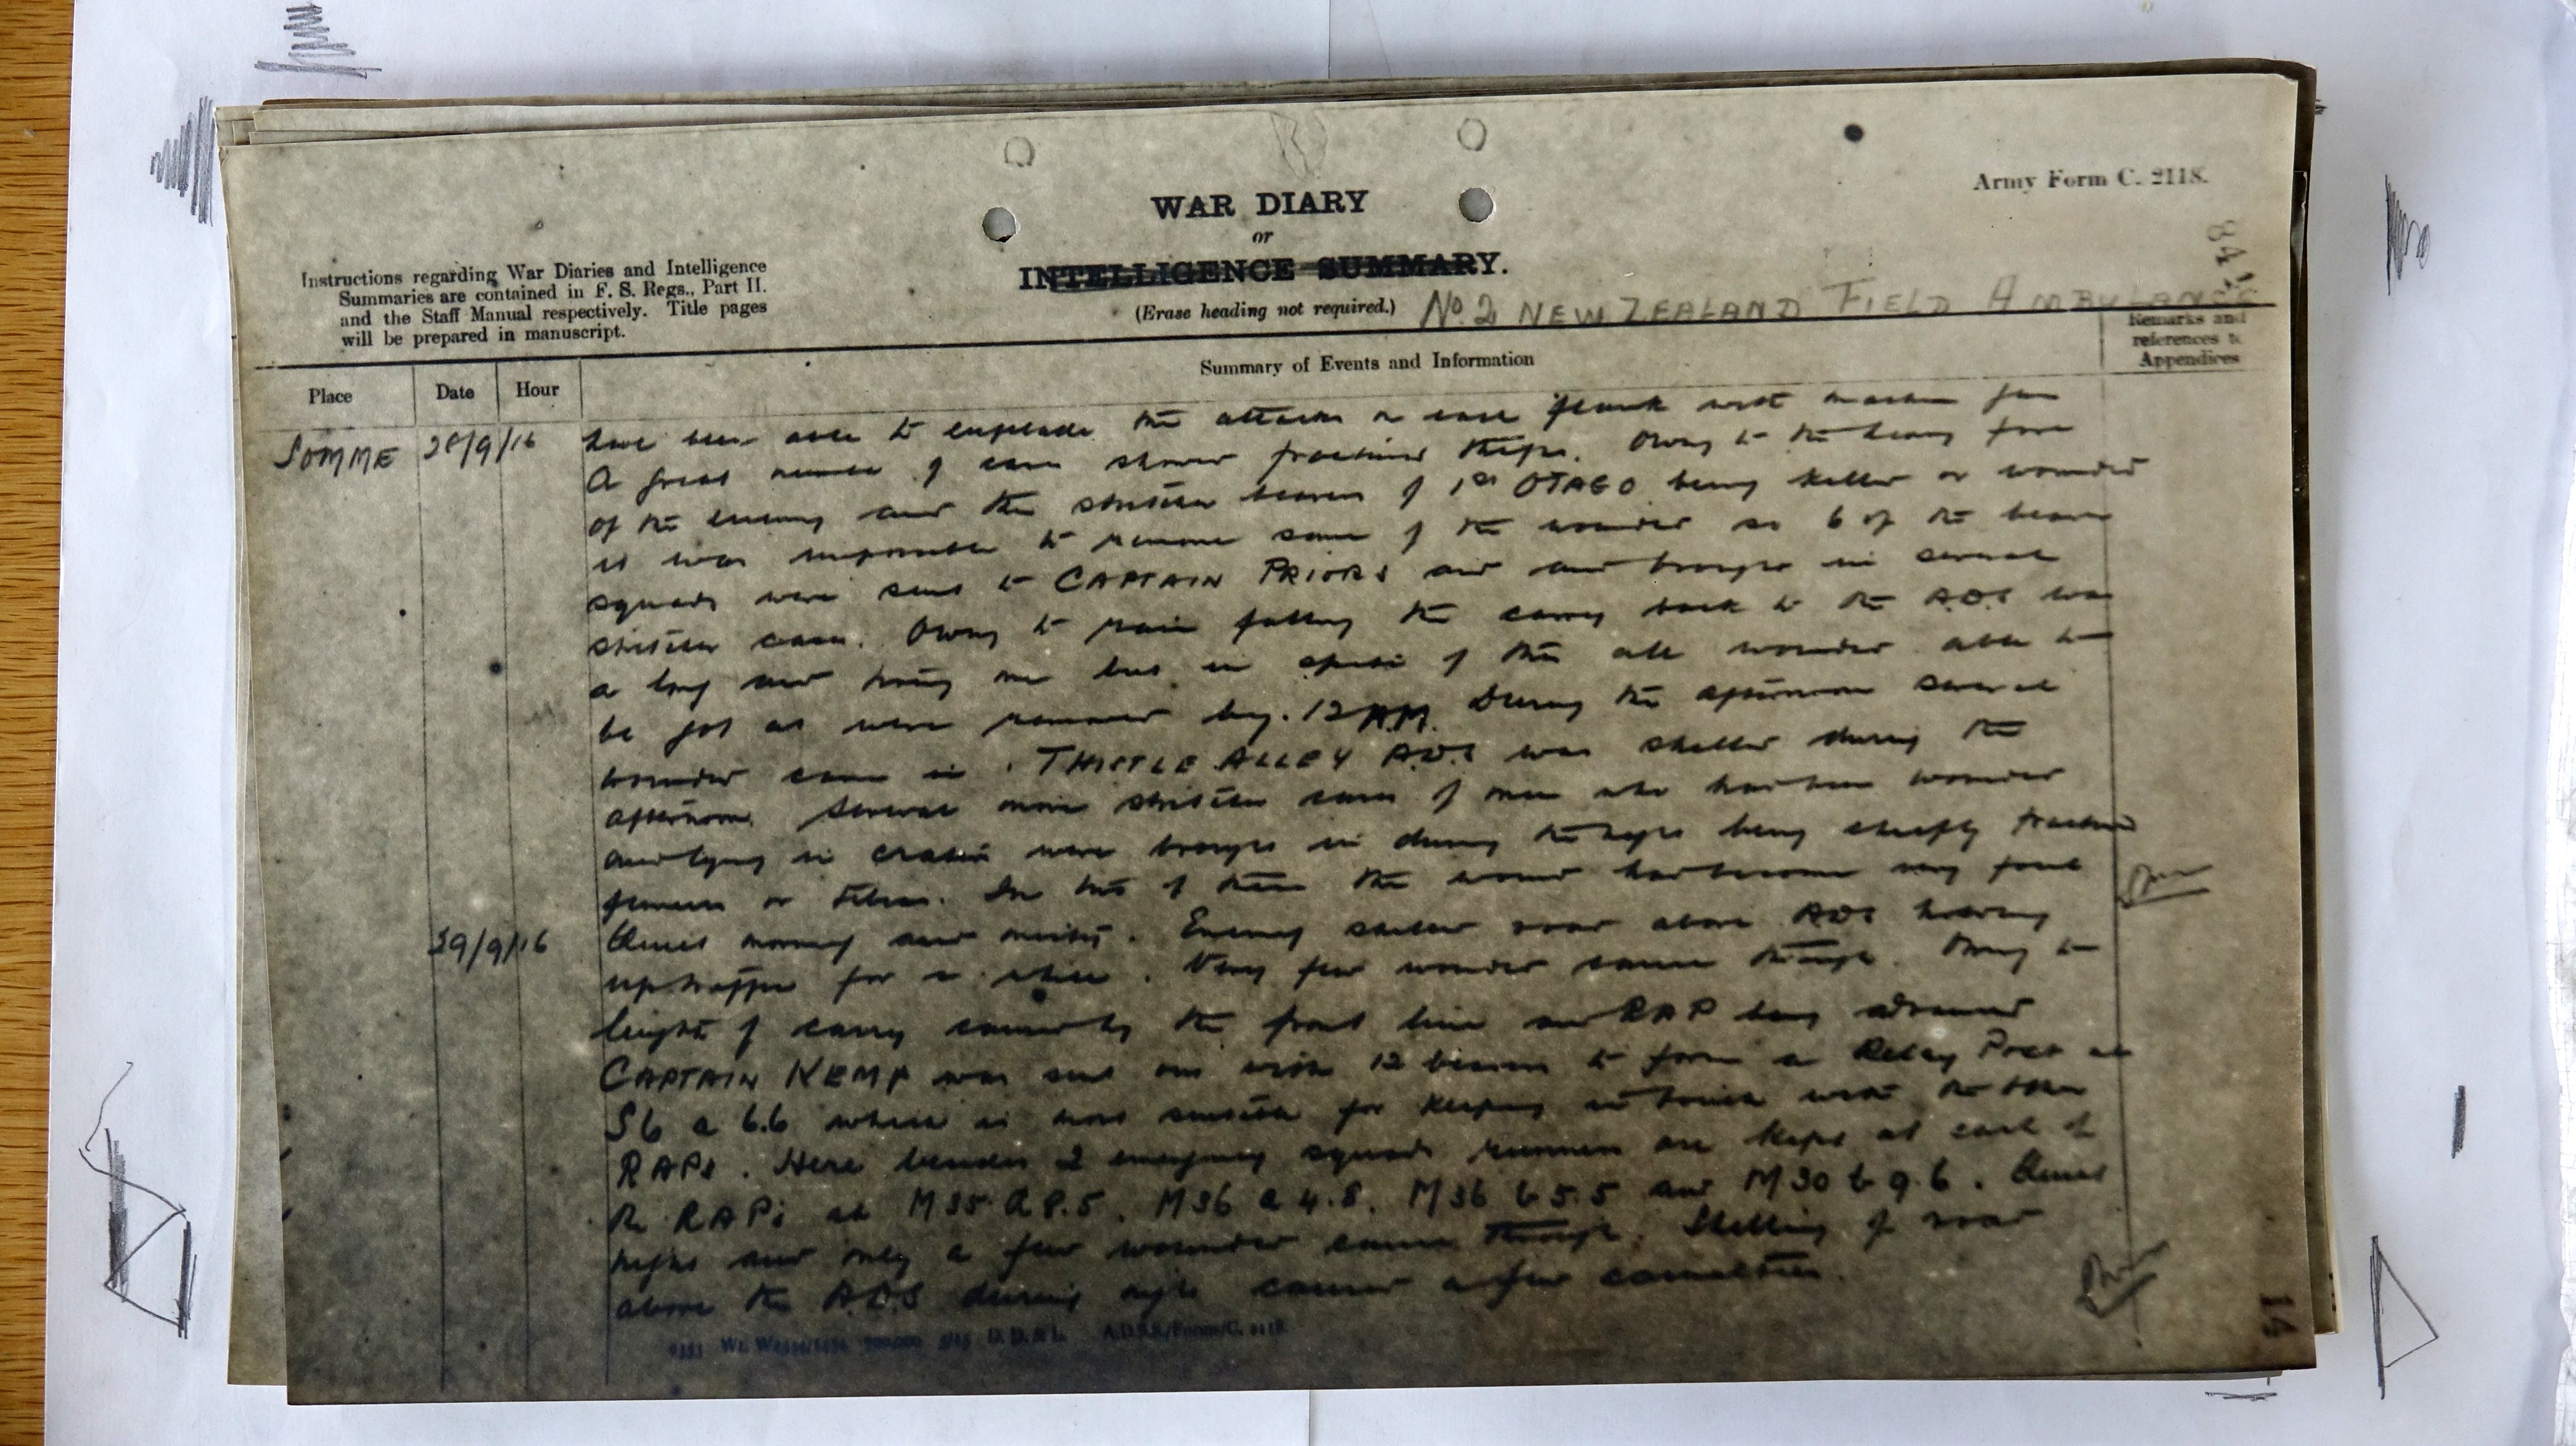 Army Form C. 2118.
84
WAR DIARY
or
INTELLIGENCE SUMMARY.
(Erase heading not required.)
No. 2 NEW ZEALAND FIELD AMBULANCE
Instructions regarding War Diaries and Intelligence
Summaries are contained in F. S. Regs., Part II.
and the Staff Manual respectively. Title pages
will be prepared in manuscript.
Remarks and
references to
Appendices
Place Date Hour Summary of Events and Information
SOMME 28/9/16 have been able to enfilade the attackers on each flank with machine gun
A great number of cases shewed fractured thighs. Owing to the heavy fire
of the enemy and the stretcher bearers of 1st OTAGO being killed or wounded
it was impossible to remove some of the wounded so 6 of the bearer
squads were sent to CAPTAIN PRIORS aid and brought in several
stretcher cases. Owing to rain falling the carry back to the A.D.S was
a long and trying one but in spite of this all wounded able to
be got at were removed by 12 A.M. During the afternoon several
wounded came in. THISTLE ALLEY A.D.S was shelled during the
afternoon. Several more stretcher cases of men who had been wounded
and lying in craters were brought in during the night being chiefly fractured
femurs or tibias. In two of these the wound had become very foul
29/9/16 Quiet morning and misty. Enemy shelled road above ADS holding
up traffic for a while. Very few wounded came through. Owing to
length of carry caused by the front line and RAP being advanced
CAPTAIN KEMP was sent out with 12 bearers to form a Relay Post at
S6 a 6.6 which is most suitable for keeping in touch with the other
RAPs. Here besides 2 emergency squads runners are kept at each of
the RAPs at M35 a 8.5. M36 a 4.8. M36 b 5.5 and M30 b 9.6. Quiet
night and only a few wounded came through. Shelling of road
above the A.D.S during night caused a few casualties.
D. D. & L. A.D.S.S./Forms/C. 2118.
14